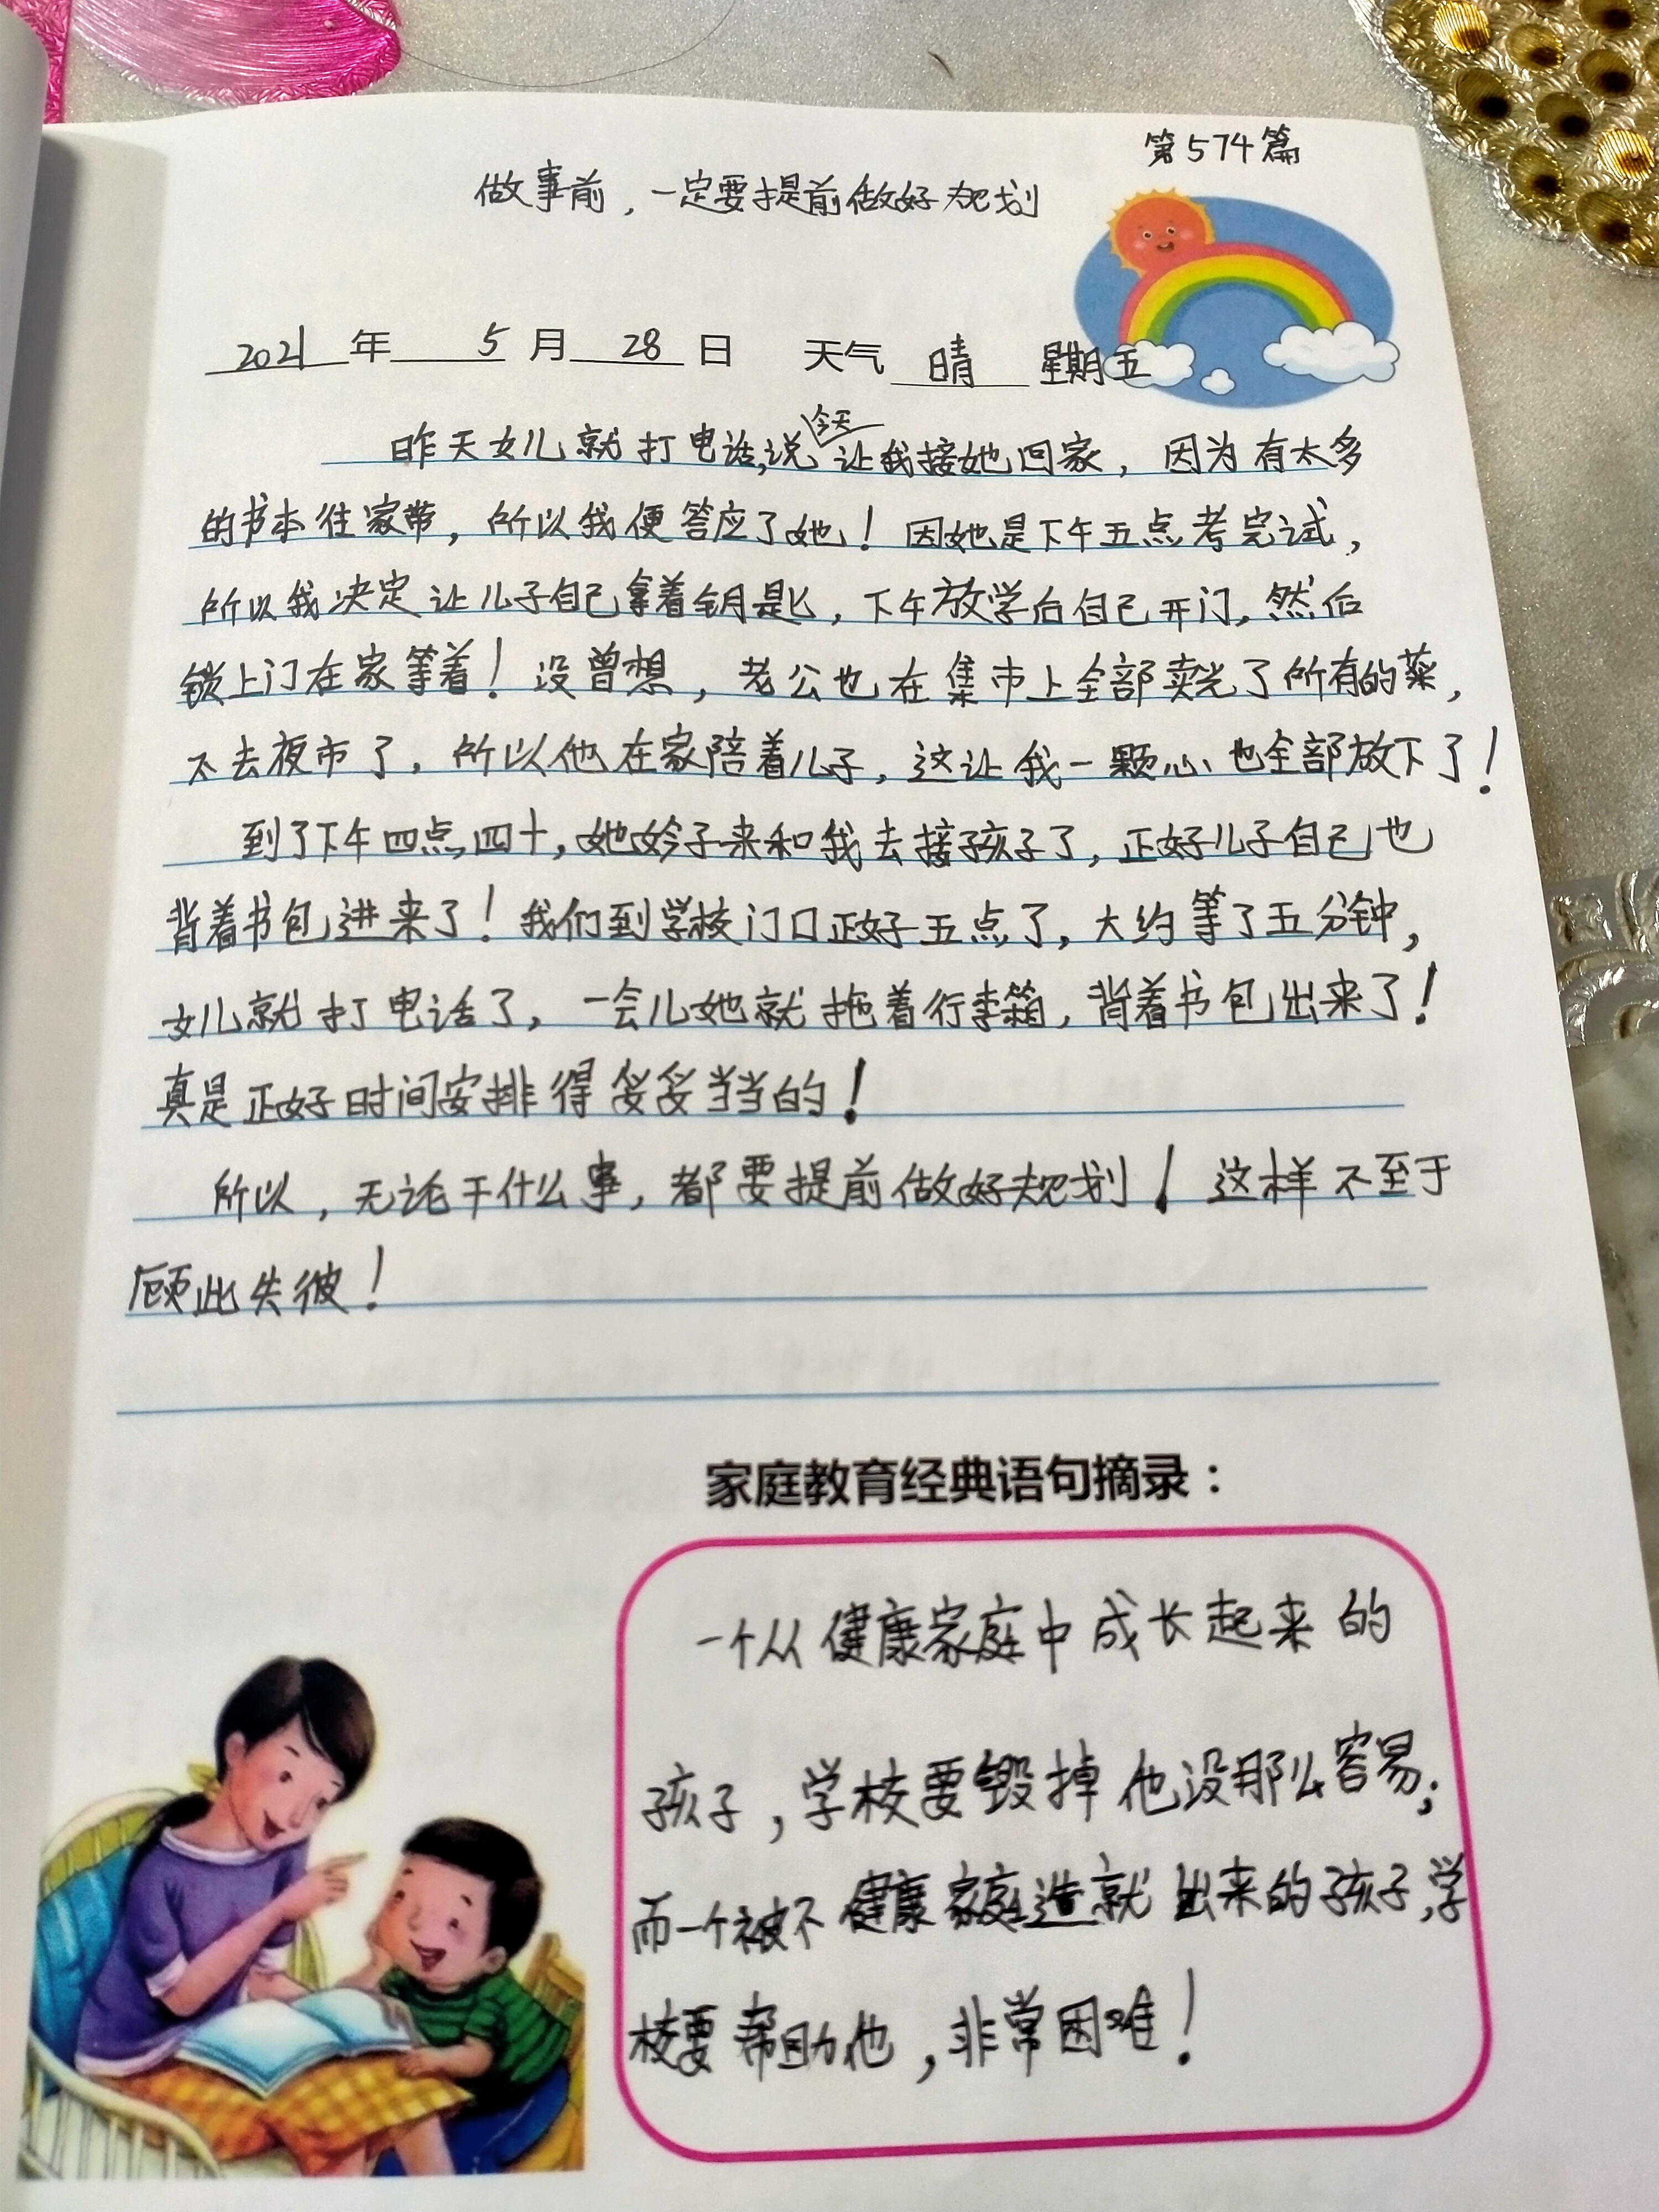 第574篇
做事前，一定要提前做好规划
2021年 5月 28日 天气 晴 星期五
昨天女儿就打电话,说今天让我接她回家，因为有太多
的书本往家带，所以我便答应了她！因她是下午五点考完试，
所以我决定让儿子自己拿着钥匙，下午放学后自己开门，然后
锁上门在家等着！没曾想，老公也在集市上全部卖光了所有的菜，
不去夜市了，所以他在家陪着儿子，这让我一颗心也全部放下了！
到了下午四点四十，她妗子来和我去接孩子了，正好儿子自己也
背着书包进来了！我们到学校门口正好五点了，大约等了五分钟，
女儿就打电话了，一会儿她就拖着行李箱，背着书包出来了！
真是正好时间安排得妥妥当当的！
所以，无论干什么事，都要提前做好规划！这样不至于
顾此失彼！
家庭教育经典语句摘录：
一个从健康家庭中成长起来的
孩子，学校要毁掉他没那么容易；
而一个被不健康家庭造就出来的孩子,学
校要帮助他，非常困难！